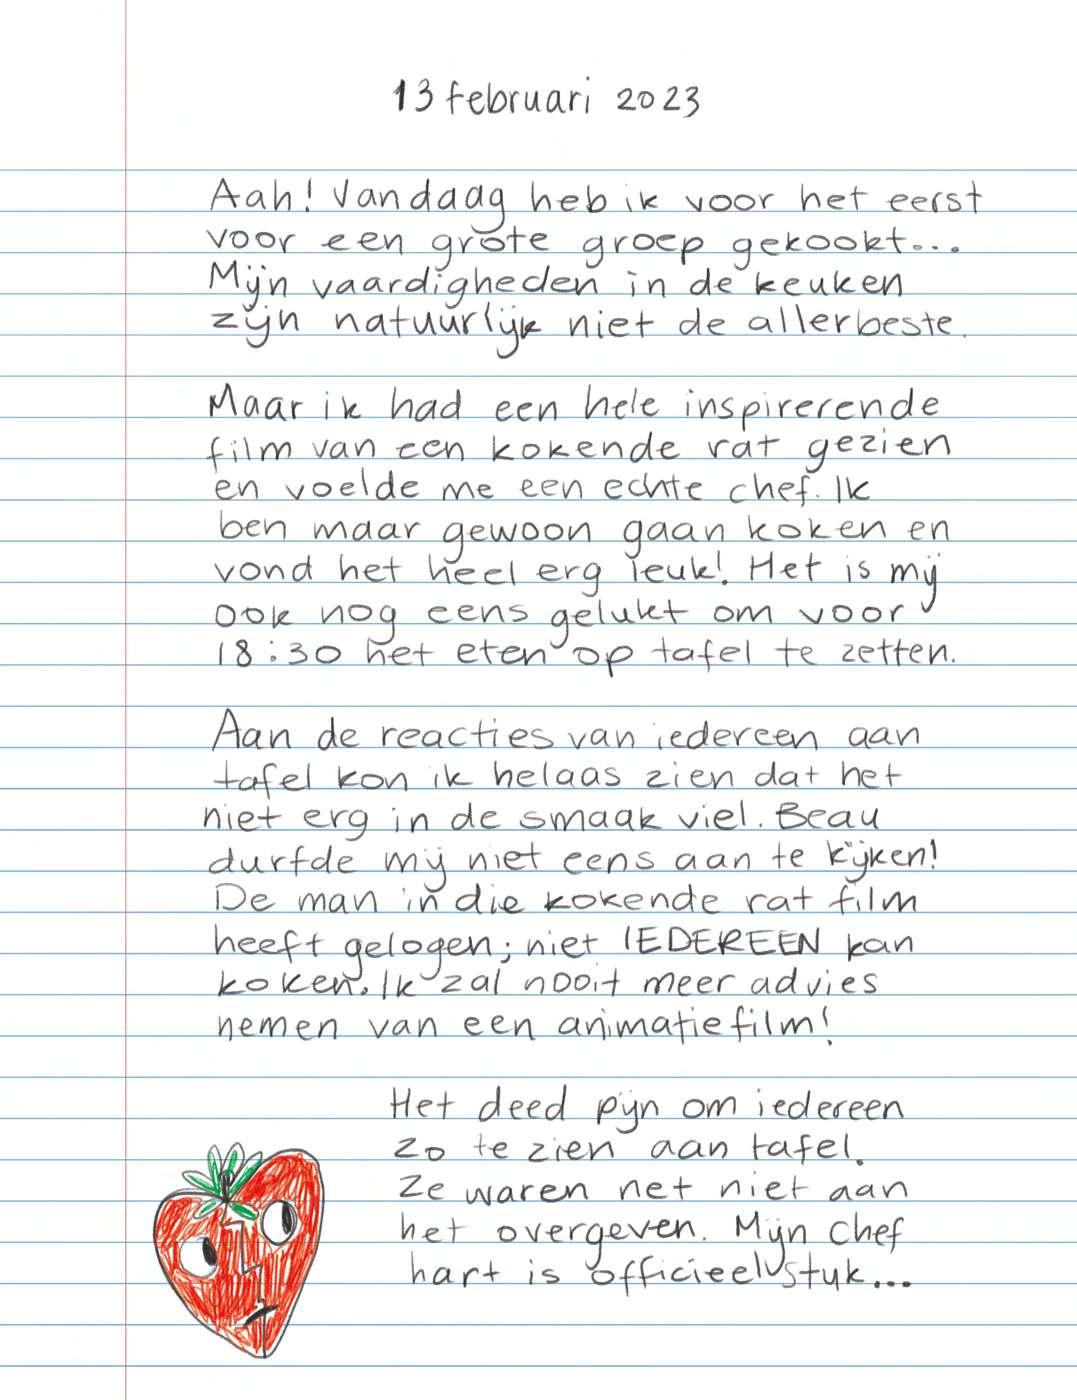 13 februari 2023
Aah! Vandaag heb ik voor het eerst
voor een grote groep gekookt...
Mijn vaardigheden in de keuken
zijn natuurlijk niet de allerbeste.
Maar ik had een hele inspirerende
film van een kokende rat gezien
en voelde me een echte chef. Ik
ben maar gewoon gaan koken en
vond het heel erg leuk! Het is mij
ook nog eens gelukt om voor
18:30 het eten op tafel te zetten.
Aan de reacties van iedereen aan
tafel kon ik helaas zien dat het
niet erg in de smaak viel. Beau
durfde mij niet eens aan te kijken!
De man in die kokende rat film
heeft gelogen; niet IEDEREEN kan
koken. Ik zal nooit meer advies
nemen van een animatiefilm!
Het deed pijn om iedereen
zo te zien aan tafel.
Ze waren net niet aan
het overgeven. Mijn chef
hart is officieel stuk...